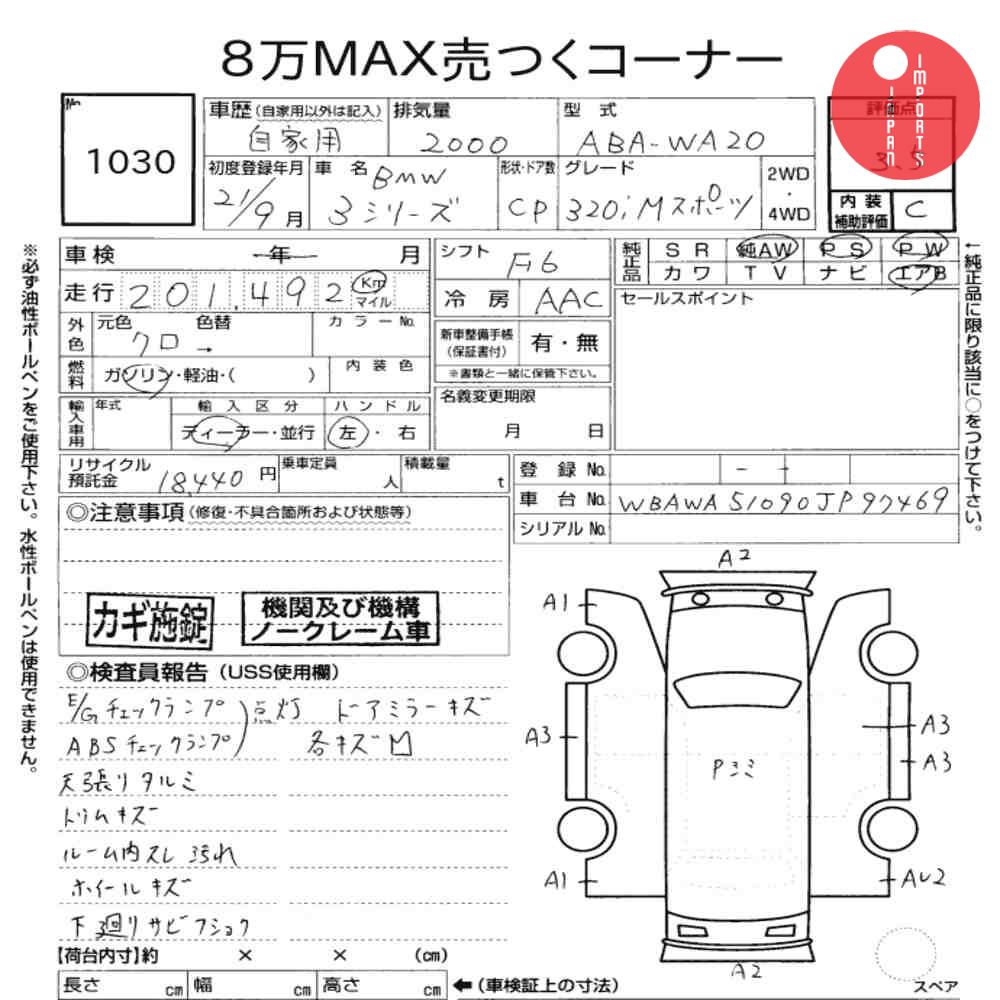 8万MAX売つくコーナー
IMPORTS
JAPAN
No.
1030
車歴(自家用以外は記入)
自家用
排気量
2000
型 式
ABA-WA20
評価点
3.5
初度登録年月
21/9月
車 名
BMW
3シリーズ
形状・ドア数
CP
グレード
320i Mスポーツ
2WD
・
4WD
内装
補助評価
C
車検 年 月
シフト
F6
純正品
SR 純AW PS PW
カワ TV ナビ エアB
走行 201,492 Km
マイル
冷房 AAC
セールスポイント
外色
元色 色替 カラーNo.
クロ →
新車整備手帳
(保証書付)
有・無
※書類と一緒に保管下さい。
燃料
ガソリン・軽油・( )
内装色
名義変更期限
月 日
輸入車用
年式
輸入区分
ディーラー・並行
ハンドル
左・右
リサイクル
預託金
18,440円
乗車定員
人
積載量
t
登録No. -
車台No. WBAWA51090JP97469
シリアルNo.
◎注意事項(修復・不具合箇所および状態等)
カギ施錠
機関及び機構
ノークレーム車
◎検査員報告(USS使用欄)
E/Gチェックランプ
ABSチェックランプ
)点灯
ドアミラーキズ
各キズ凹
天張りタルミ
トリムキズ
ルーム内スレ汚れ
ホイールキズ
下廻りサビフショク
【荷台内寸】約 × × (cm)
長さ cm 幅 cm 高さ cm
←(車検証上の寸法)
A2
A1
A3
A3
A3
Pミミ
A1
AU2
A2
スペア
※必ず油性ボールペンをご使用下さい。水性ボールペンは使用できません。
←純正品に限り該当に○をつけて下さい。